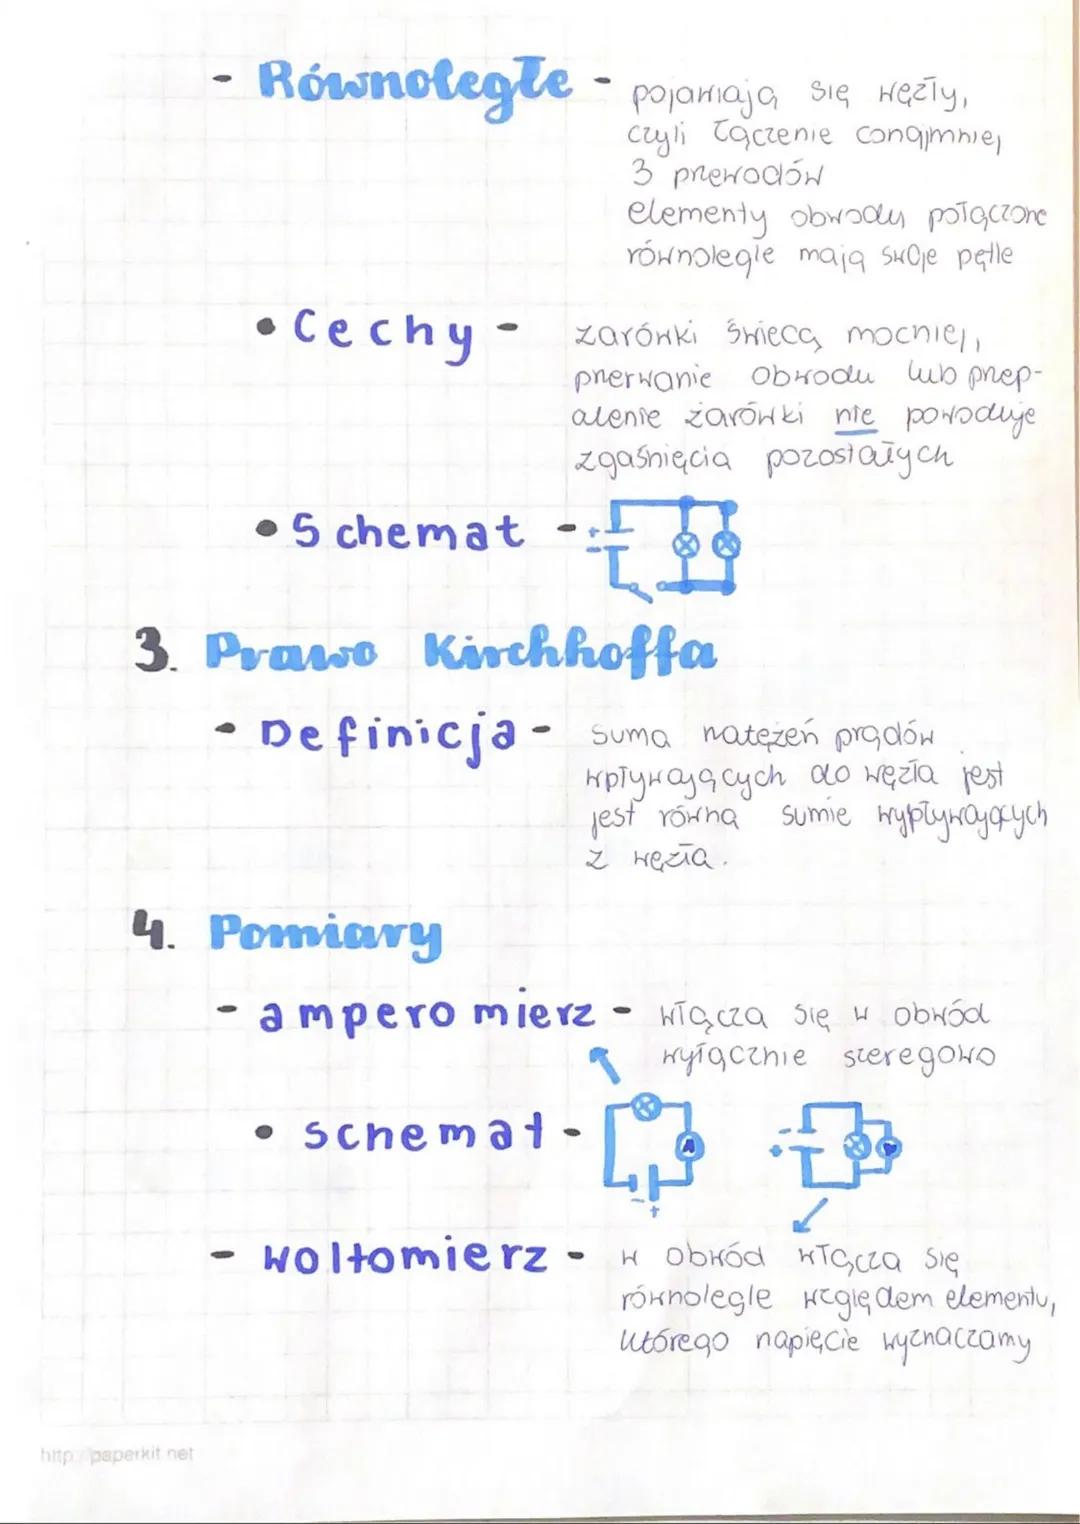 - Równoległe - pojawiają się węzły,
czyli łączenie conajmniej
3 przewodów
elementy obwodu połączone
równolegle mają swoje pętle
• Cechy - żarówki świecą mocniej,
przerwanie obwodu lub przep-
alenie żarówki nie powoduje
zgaśnięcia pozostałych
• Schemat -
+
-
3. Prawo Kirchhoffa
- Definicja - suma natężeń prądów
wpływających do węzła jest
jest równa sumie wypływających
z węzła.
4. Pomiary
- amperomierz - włącza się w obwód
wyłącznie szeregowo
• schemat -
A
- +
- +
V
- woltomierz - w obwód włącza się
równolegle względem elementu,
którego napięcie wyznaczamy
http://paperkit.net